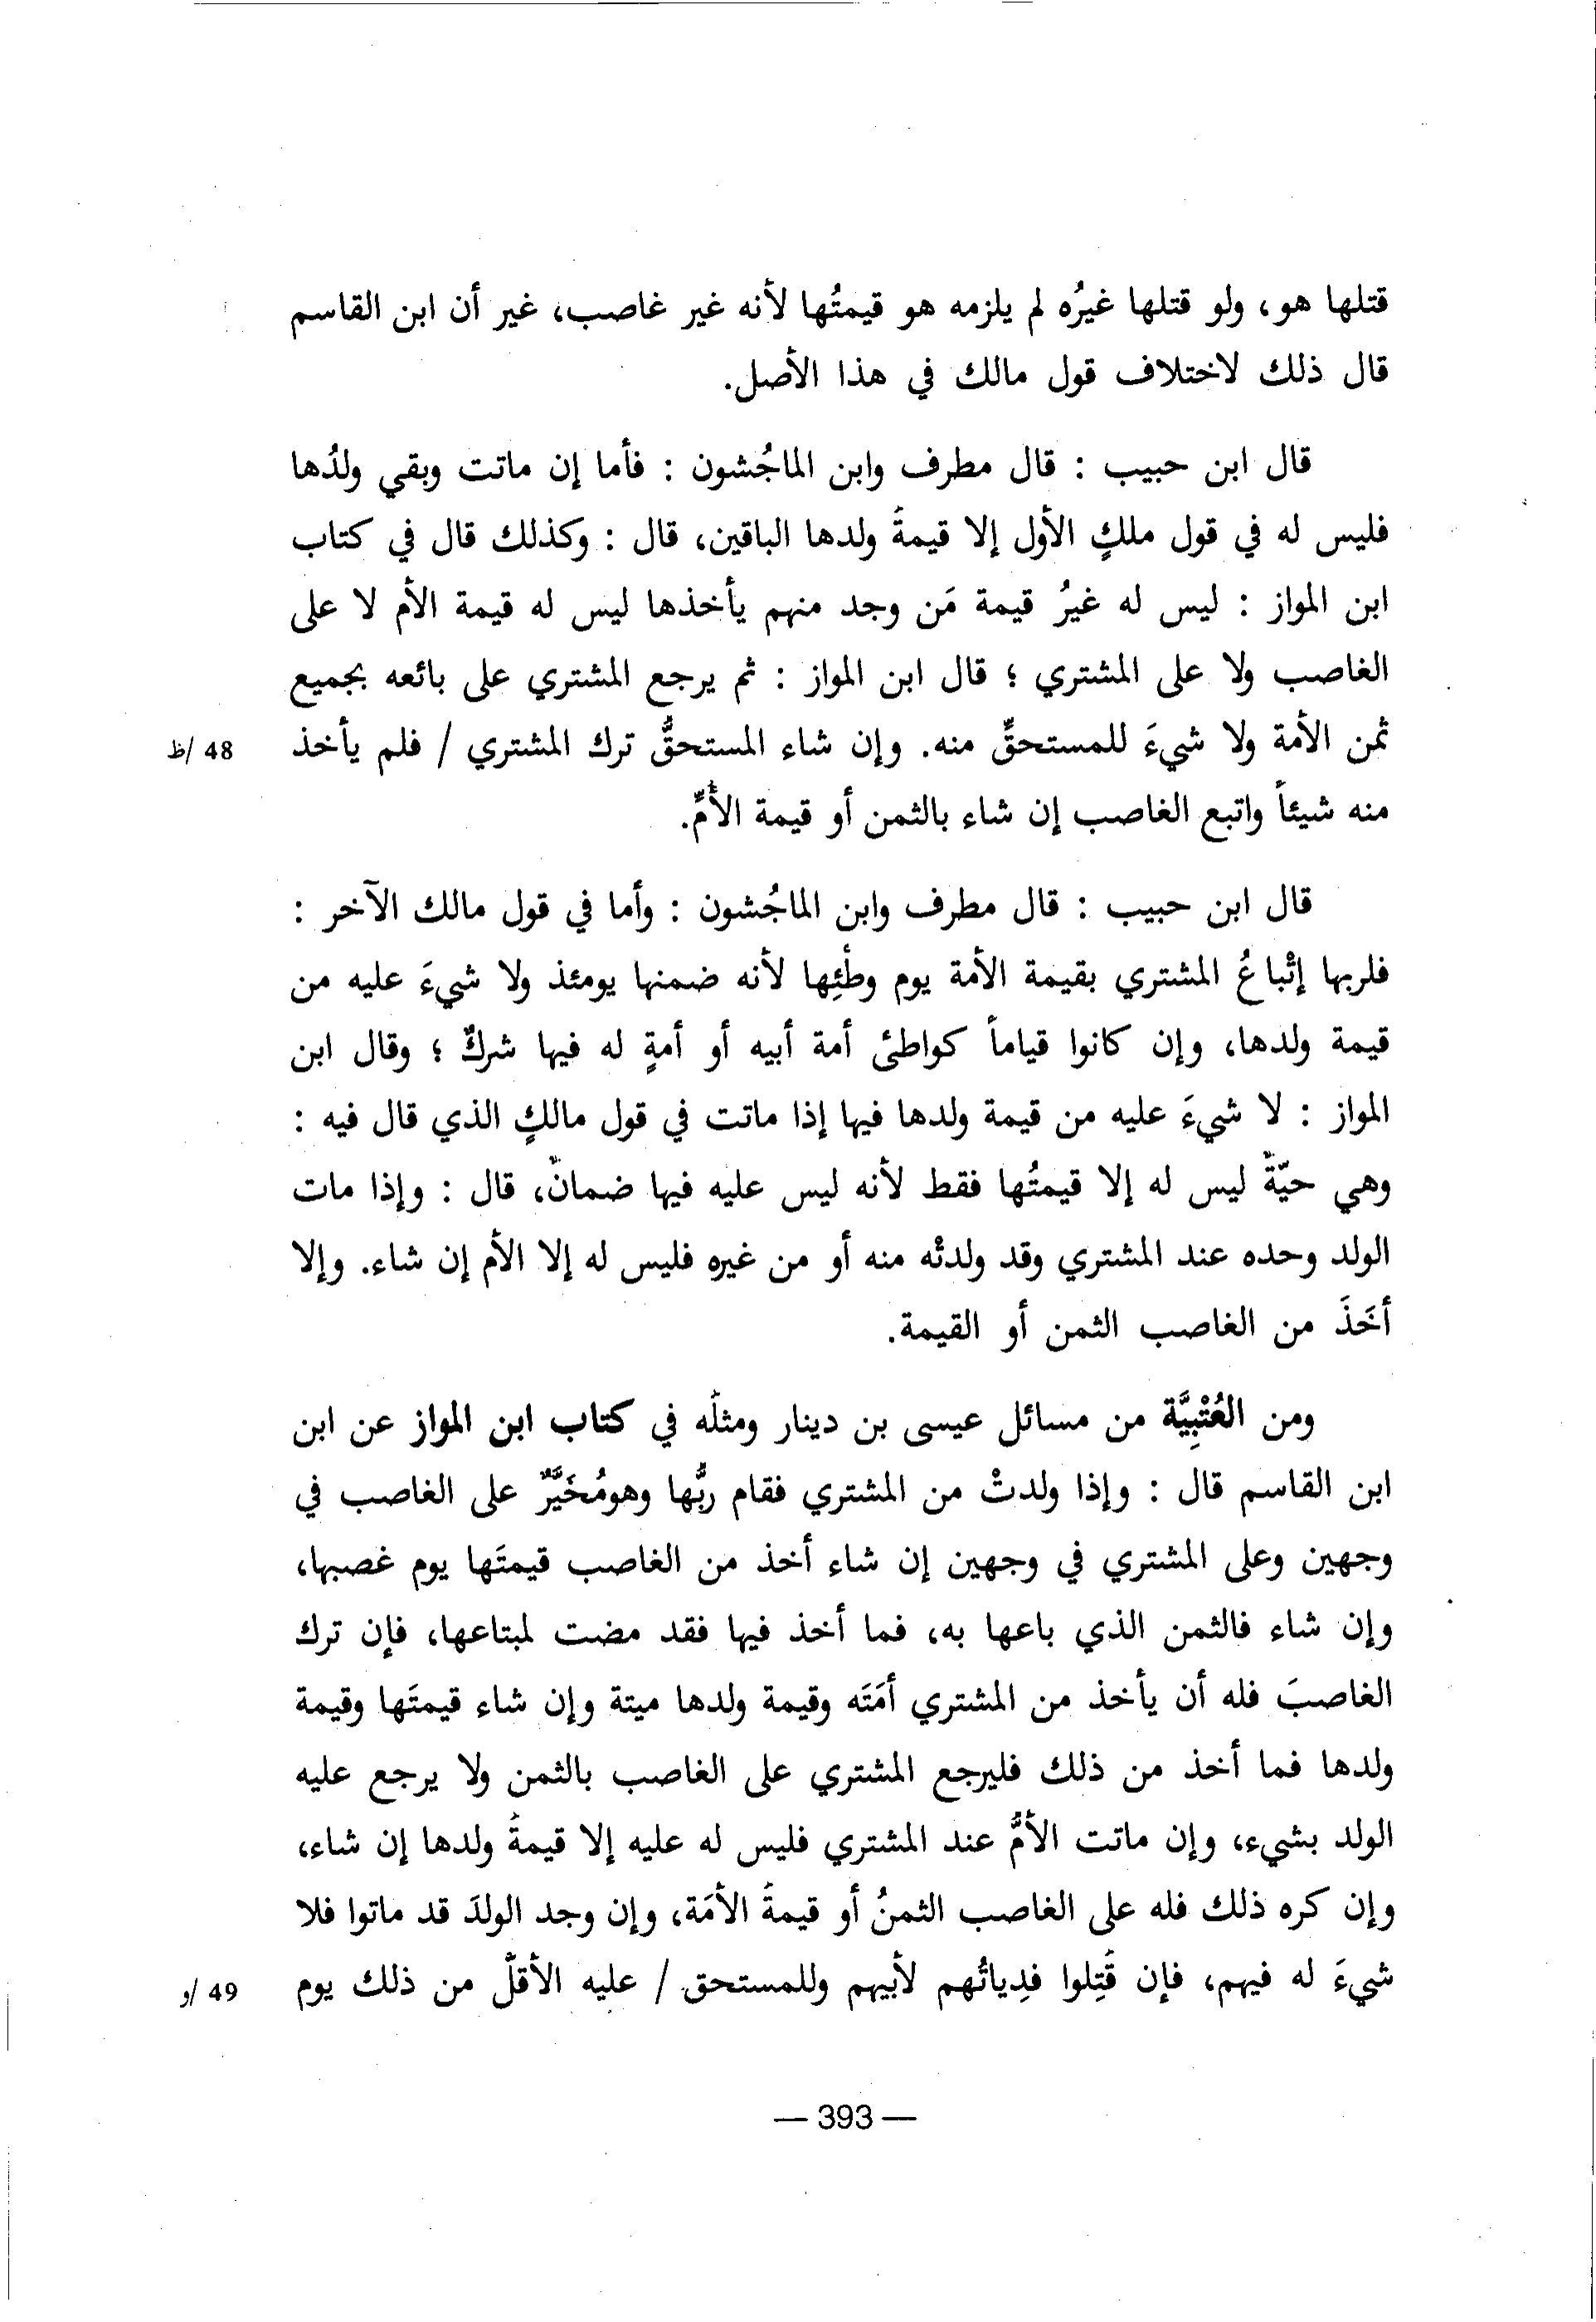 قتلها هو، ولو قتلها غيرُه لم يلزمه هو قيمتُها لأنه غير غاصب، غير أن ابن القاسم
قال ذلك لاختلاف قول مالك في هذا الأصل.
قال ابن حبيب : قال مطرف وابن الماجُشون : فأما إن ماتت وبقي ولدُها
فليس له في قول ملكٍ الأول إلا قيمةُ ولدها الباقين، قال : وكذلك قال في كتاب
ابن المواز : ليس له غيرُ قيمة مَن وجد منهم يأخذها ليس له قيمة الأم لا على
الغاصب ولا على المشتري ؛ قال ابن المواز : ثم يرجع المشتري على بائعه بجميع
ثمن الأمة ولا شيءَ للمستحقِّ منه. وإن شاء المستحقُّ ترك المشتري / فلم يأخذ 48 /ظ
منه شيئاً واتبع الغاصب إن شاء بالثمن أو قيمة الأُمِّ.
قال ابن حبيب : قال مطرف وابن الماجُشون : وأما في قول مالك الآخر :
فلربها إتْباعُ المشتري بقيمة الأمة يوم وطْئِها لأنه ضمنها يومئذ ولا شيءَ عليه من
قيمة ولدها، وإن كانوا قياماً كواطئ أمة أبيه أو أمةٍ له فيها شركٌ ؛ وقال ابن
المواز : لا شيءَ عليه من قيمة ولدها فيها إذا ماتت في قول مالكٍ الذي قال فيه :
وهي حيّةٌ ليس له إلا قيمتُها فقط لأنه ليس عليه فيها ضمانٌ، قال : وإذا مات
الولد وحده عند المشتري وقد ولدتْه منه أو من غيره فليس له إلا الأم إن شاء. وإلا
أخَذَ من الغاصب الثمن أو القيمة.
ومن العُتْبِيَّة من مسائل عيسى بن دينار ومثلُه في كتاب ابن المواز عن ابن
ابن القاسم قال : وإذا ولدتْ من المشتري فقام ربُّها وهومُخَيَّرٌ على الغاصب في
وجهين وعلى المشتري في وجهين إن شاء أخذ من الغاصب قيمتَها يوم غصبها،
وإن شاء فالثمن الذي باعها به، فما أخذ فيها فقد مضت لمبتاعها، فإن ترك
الغاصبَ فله أن يأخذ من المشتري أمَتَه وقيمة ولدها ميتة وإن شاء قيمتَها وقيمة
ولدها فما أخذ من ذلك فليرجع المشتري على الغاصب بالثمن ولا يرجع عليه
الولد بشيء، وإن ماتت الأمُّ عند المشتري فليس له عليه إلا قيمةُ ولدها إن شاء،
وإن كره ذلك فله على الغاصب الثمنُ أو قيمةُ الأمَة، وإن وجد الولدَ قد ماتوا فلا
شيءَ له فيهم، فإن قُتِلوا فدِياتُهم لأبيهم وللمستحق / عليه الأقلّ من ذلك يوم 49 /و
— 393 —